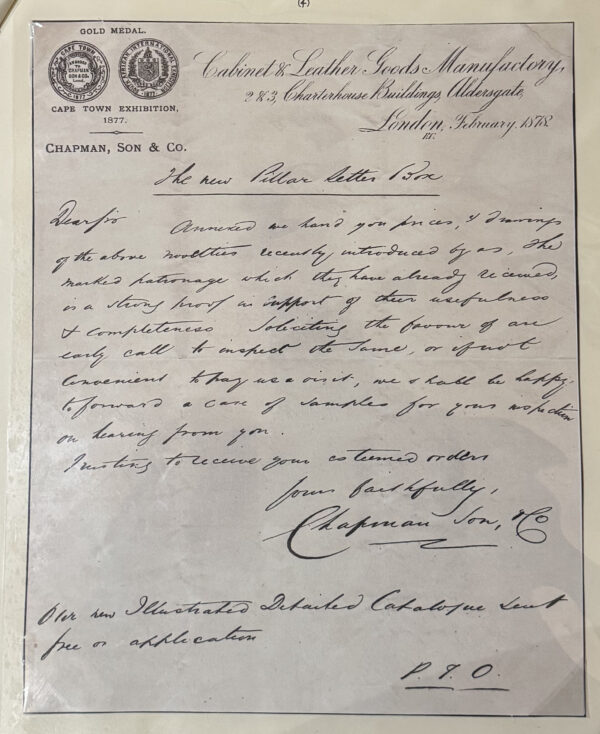 (4)
GOLD MEDAL.
CAPE TOWN
AWARDED TO CHAPMAN SON & Co. Lond.
1877
INTERNATIONAL
CAPE TOWN EXHIBITION,
1877.
CHAPMAN, SON & Co.
Cabinet & Leather Goods Manufactory,
2 & 3, Charterhouse Buildings, Aldersgate,
London, February 1878.
E.C.
The new Pillar Letter Box
Dear Sir Annexed we hand you prices, & drawings
of the above novelties recently introduced by us, The
marked patronage which they have already received,
is a strong proof in support of their usefulness
& completeness Soliciting the favour of an
early call to inspect the same, or if not
convenient to pay us a visit, we shall be happy
to forward a case of samples for your inspection
on hearing from you.
Trusting to receive your esteemed orders
Yours faithfully,
Chapman Son, & Co
Our new Illustrated Detailed Catalogue sent
free on application
P. T. O.